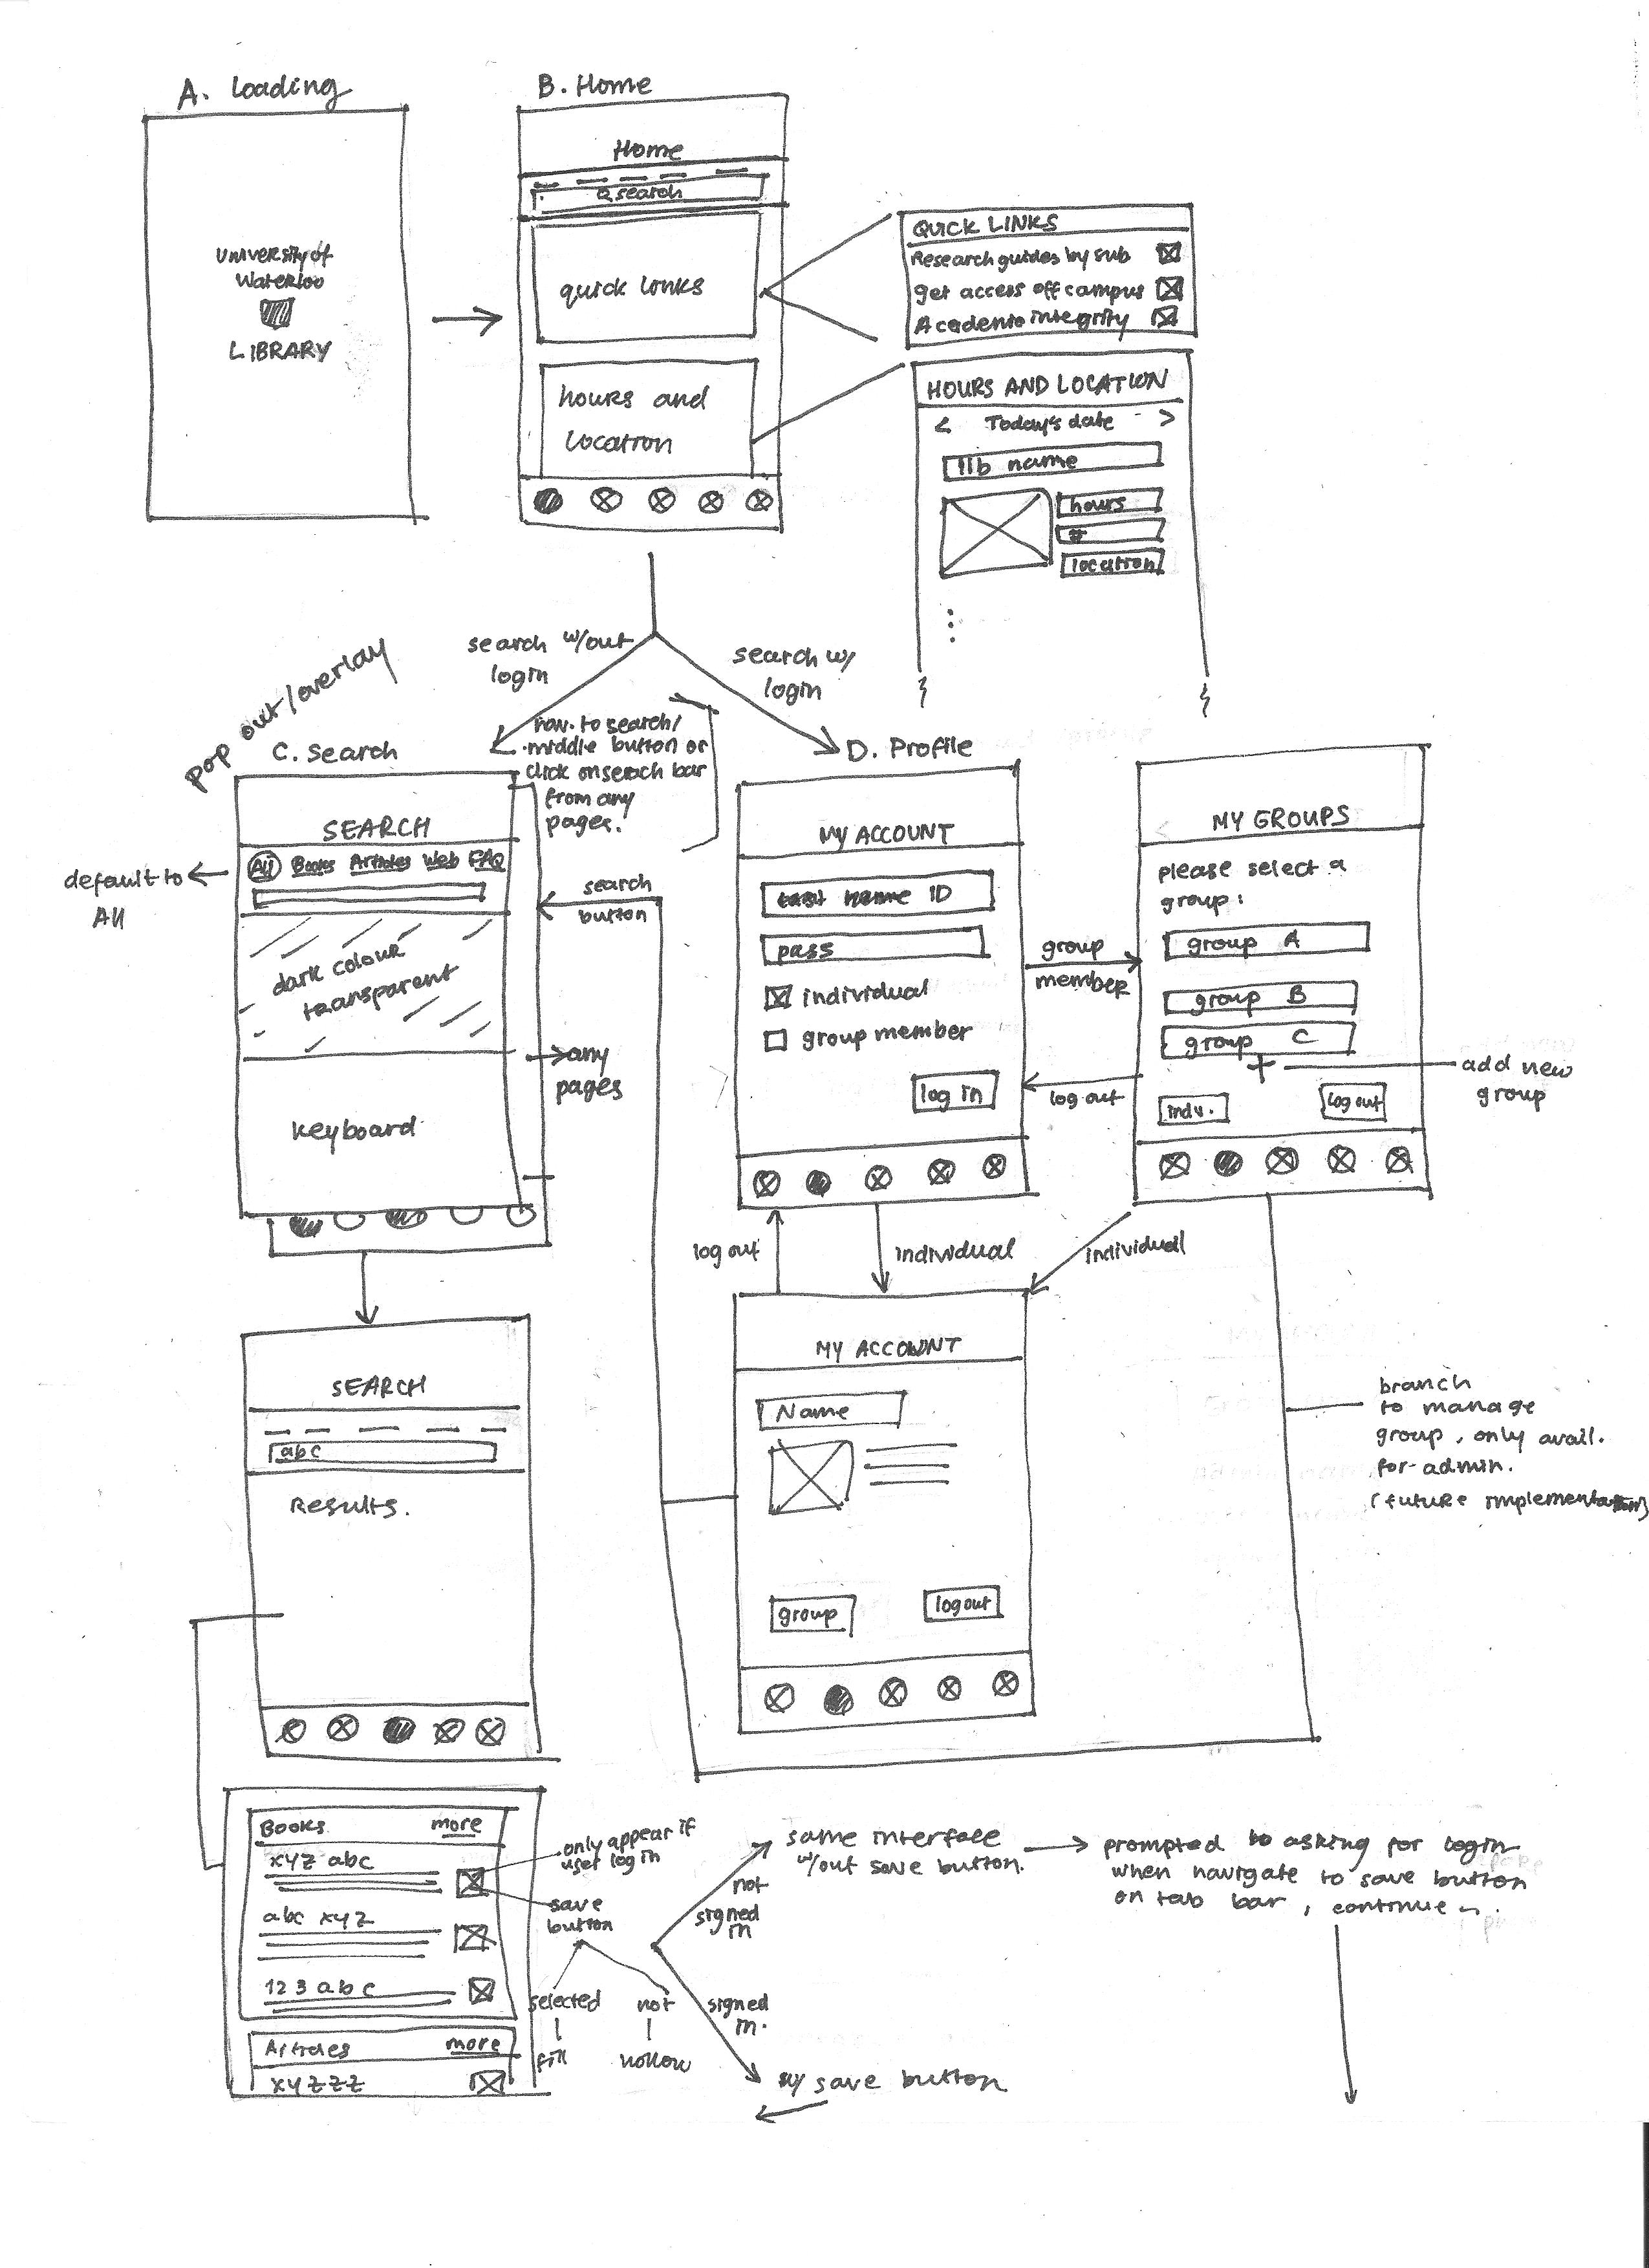 A. Loading
University of
Waterloo
LIBRARY
B. Home
Home
search
quick links
hours and
location
QUICK LINKS
Research guides by sub
get access off campus
integrity
HOURS AND LOCATION
< Today's date >
lib name
hours
#
location
search w/out
login
search w/
login
pop out/overlay
C. Search
to search/
middle button or
click on serach bar
from any
pages.
SEARCH
All Books Articles Web FAQ
default to
All
dark colour
transparent
keyboard
search
button
any
pages
D. Profile
MY ACCOUNT
name ID
pass
individual
group member
log in
group
member
log out
MY GROUPS
please select a
group:
group A
group B
group C
+
add new
group
indv.
log out
log out
individual
individual
MY ACCOUNT
Name
group
logout
branch
to manage
group, only avail.
for admin.
(future implementation)
SEARCH
abc
Results.
Books more
xyz abc
abc xyz
123 abc
Articles more
xyzzz
only appear if
user log in
save
button
selected
fill
not
hollow
not
signed
in
signed
in.
same interface
w/out save button.
prompted to asking for login
when navigate to save button
on tab bar, continue
w/ save button